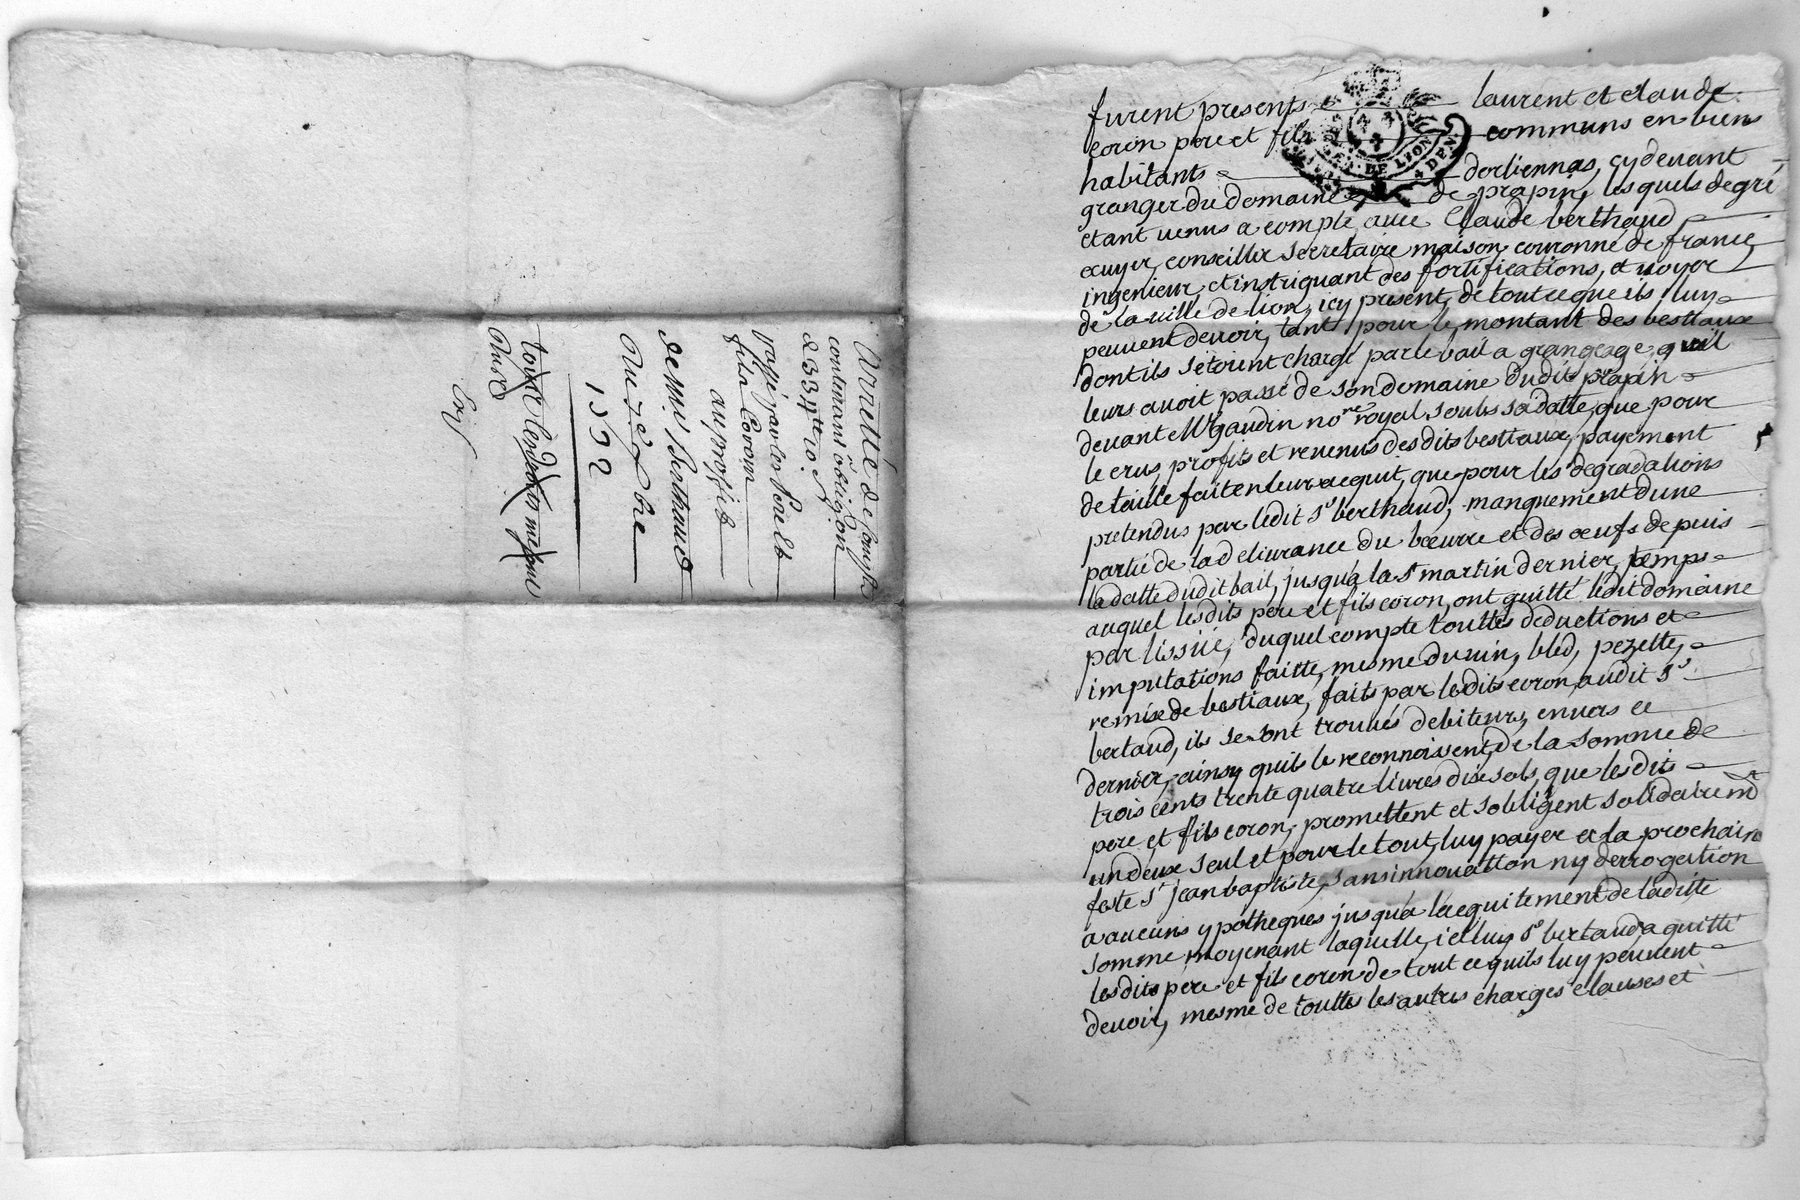 furent presents laurent et claude
coron pere et fils communs en biens
habitants dorliennas, cy devant
granger du domaine de prapin, lesquels de gré
etant venus a compte avec Claude berthaud
ecuyer, conseiller secretaire maison couronne de france
ingenieur et instriquant des fortifications, et voyer
de la ville de lion, icy present, de tout ce que ils luy
peuvent devoir, tant pour le montant des bestiaux
dont ils s'étoient chargé par le bail a grangeage, quil
leurs avoit passé de son domaine dudit prapin
devant Me gaudin nore royal soubs sa datte, que pour
le crus, profits et revenus desdits bestiaux, payement
de taille fait en leur acquit, que pour les degradations
pretendus par ledit Sr berthaud, manquement d'une
partie de la delivrance du beurre et des oeufs depuis
la datte dudit bail, jusqu'a la St martin dernier, temps
auquel lesdits pere et fils coron, ont quitté ledit domaine
par lissüe, duquel compte touttes deductions et
imputations faitte, mesme du vin, bled, pezette,
remise de bestiaux, faits par lesdits coron, audit Sr
bertaud, ils se sont trouvés debiteurs, envers ce
dernier, ainsy quils le reconnoissent, de la somme de
trois cents trente quatre livres dix sols, que lesdits
pere et fils coron, promettent et sobligent solidairemt
un deux seul et pour le tout, luy payer a la prochaine
feste St jean baptiste, sans innovation ny derrogation
a aucuns ypotheques jusqu'a lacquitement de laditte
somme moyenant laquelle, icelluy Sr bertaud a quitté
lesdits pere et fils coron de tout ce quils luy peuvent
devoir, mesme de touttes les autres charges clauses et
DE LION
4 DEN
Arretté de Compte
contenant obligõn
de 334tt 10 s
passé par les Pere et
fils Coron
au proffit
de Mr Berthaud
Du 2e xbre
1732